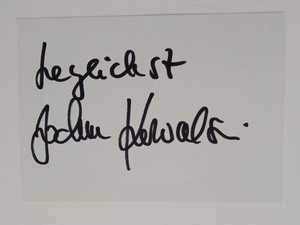 Herzlichst
Jochen Kowalski